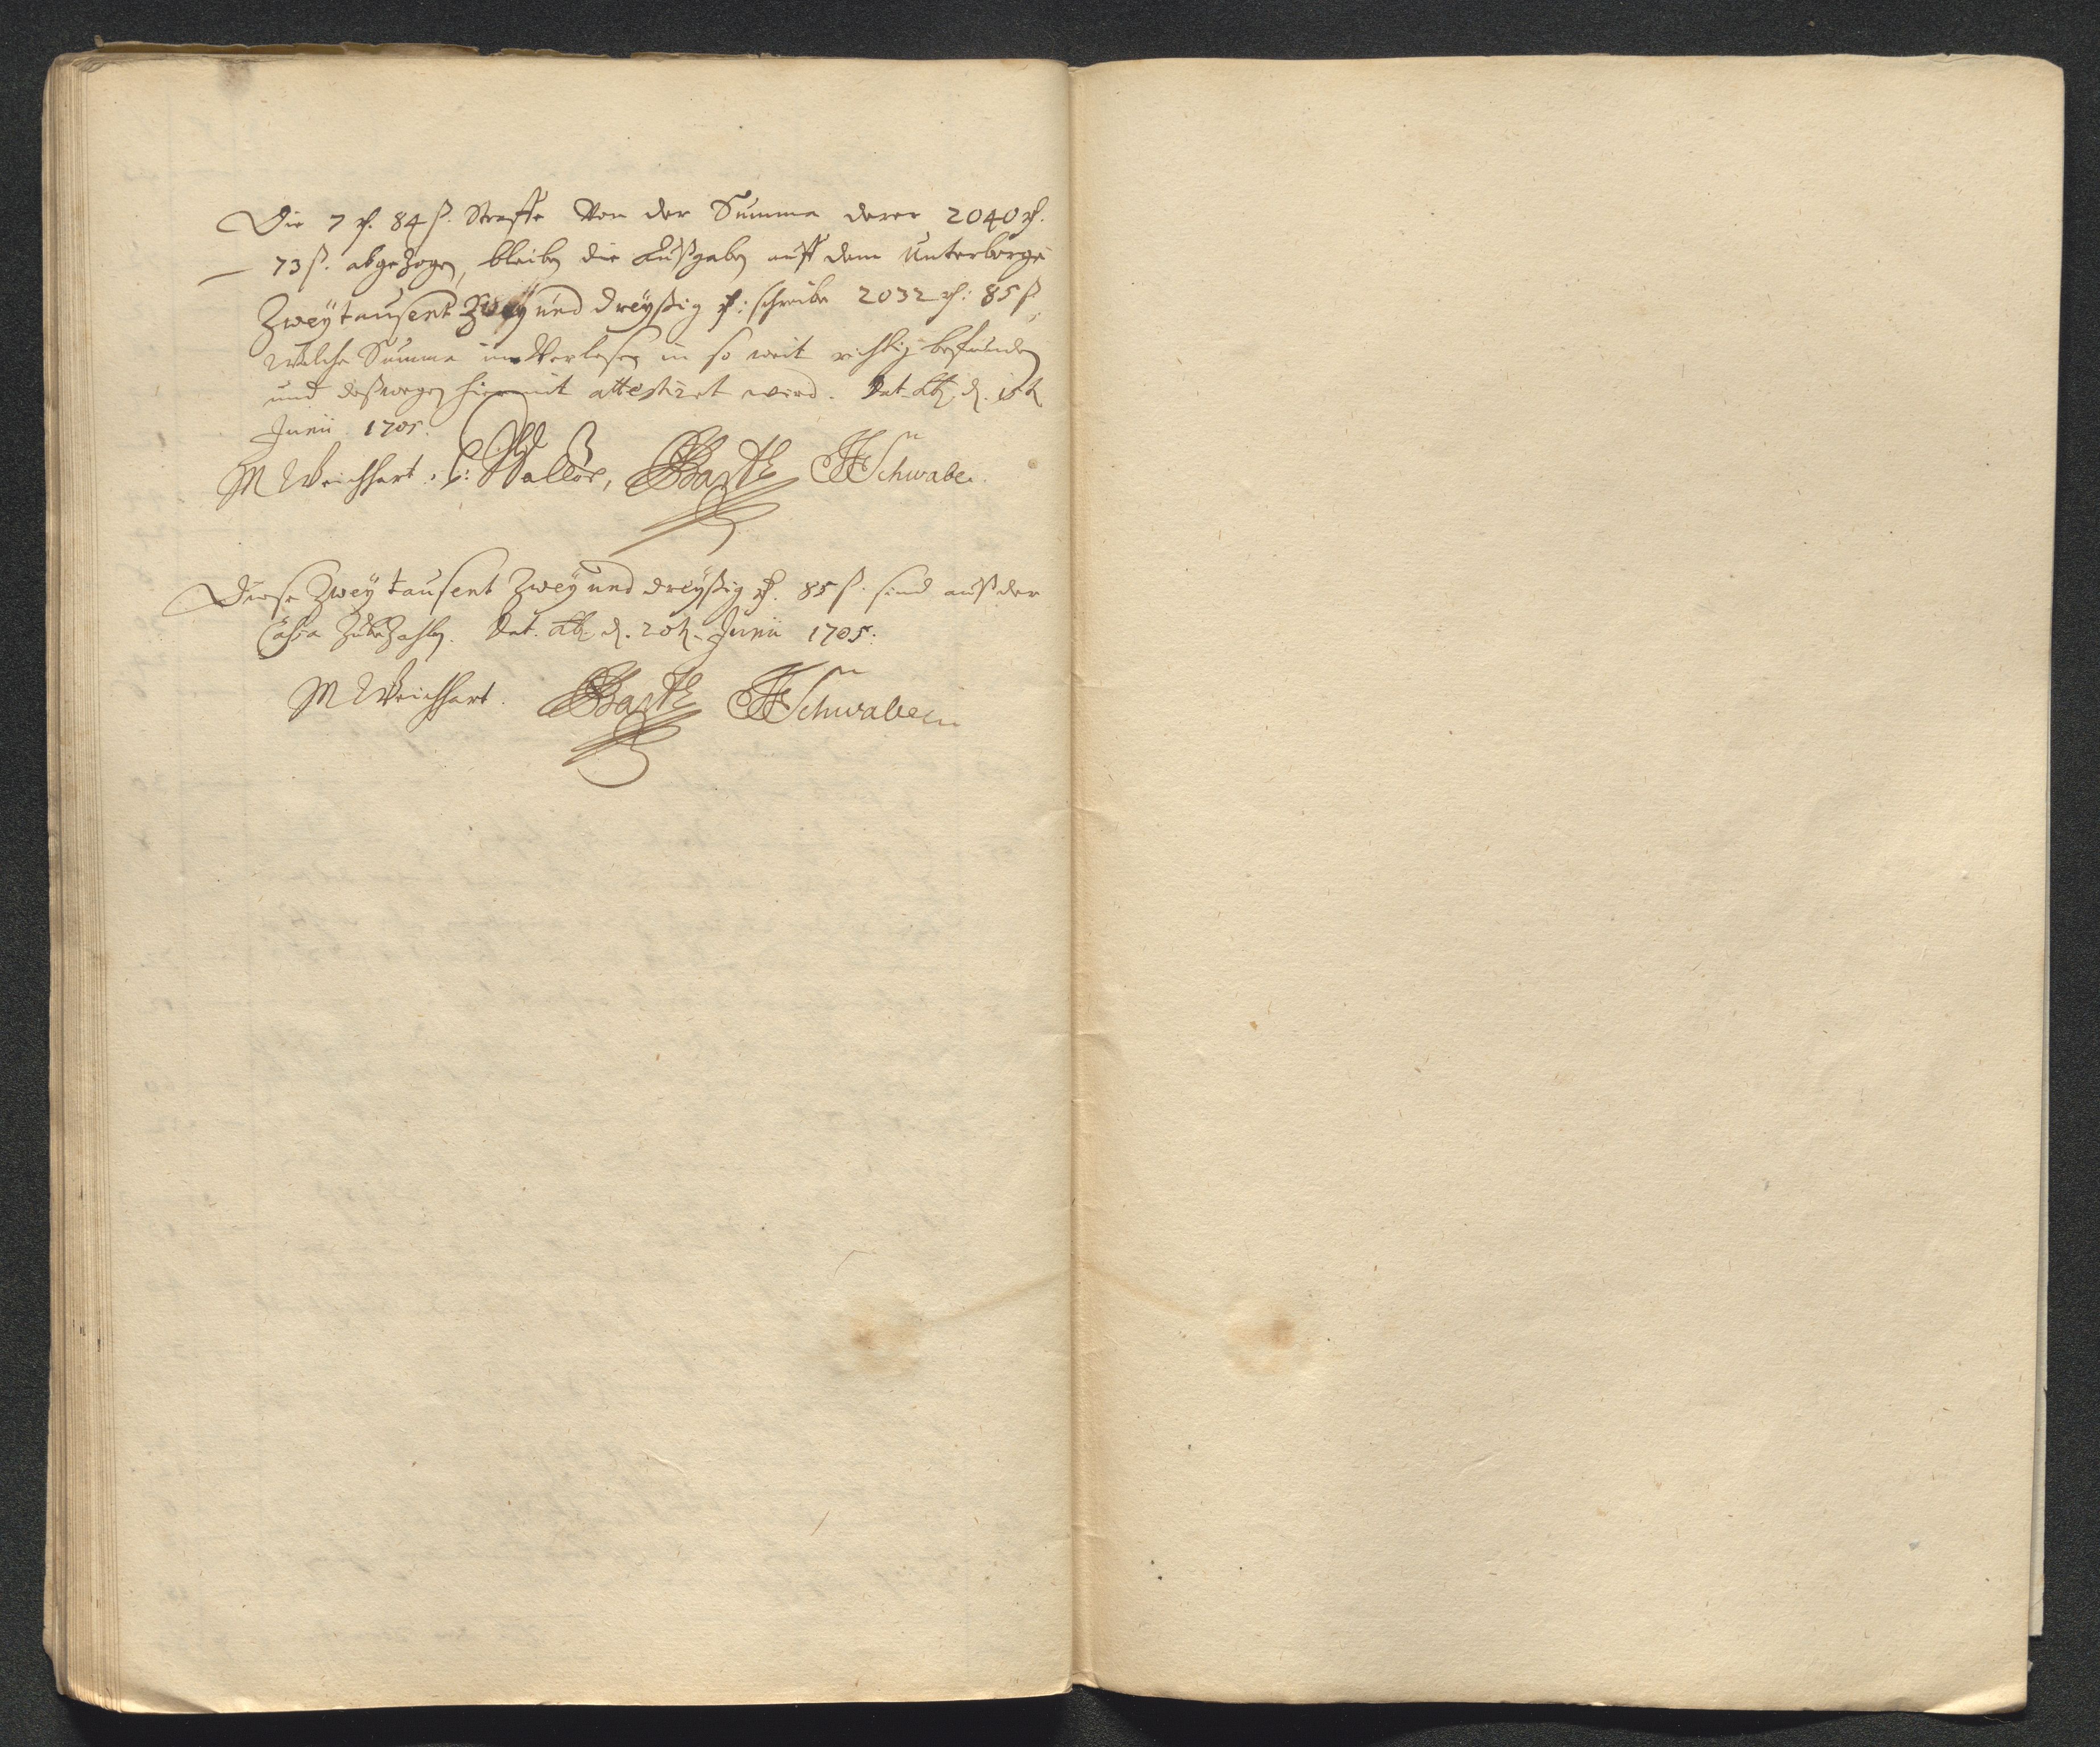 Die 7 rh. 84 ß. Straffe Von der Summa derer 2040 rh.
73 ß. abgezogen, bleiben die Außgaben auff dem Unterberge
Zweytausent Zwey und dreyßig rh: schreibe 2032 rh: 85 ß,
welche Summa im Verlesen in so weit richtig befunden
und deßwegen hiermit attestiret wird. Dat. d. 15t.
Junii 1705.
M Weichhart. Barth Schwabe.
Diese Zweytausent Zwey und dreyßig rh. 85 ß. sind auß der
Cassa Zubezahlen. Dat. d. 20t. Junii 1705.
M Weichhart. Barth Schwabe